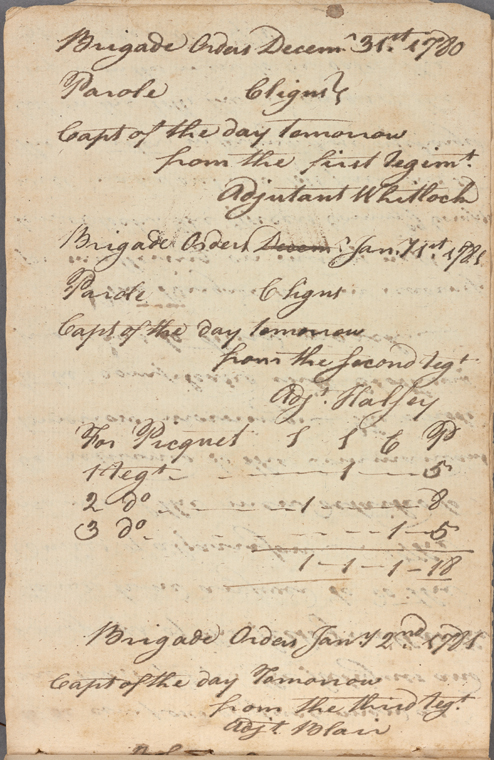 Brigade Orders Decemr 31st 1780
Parole Cligns
Capt of the day tomorrow
from the first regimt.
Adjutant Whitlock
Brigade Orders Decemr Jany 1st 1781
Parole Cligns
Capt of the day tomorrow
from the second regt
Adjt. Halsey
For Picquet S S C P
1 regt - - - 1 - - - 5
2 do - - - 1 - - - 8
3 do - - - 1 - 5
1 - 1 - 1 - 18
Brigade Orders Jany 2nd 1781
Capt of the day Tomorrow
from the third regt.
Adjt. Blair